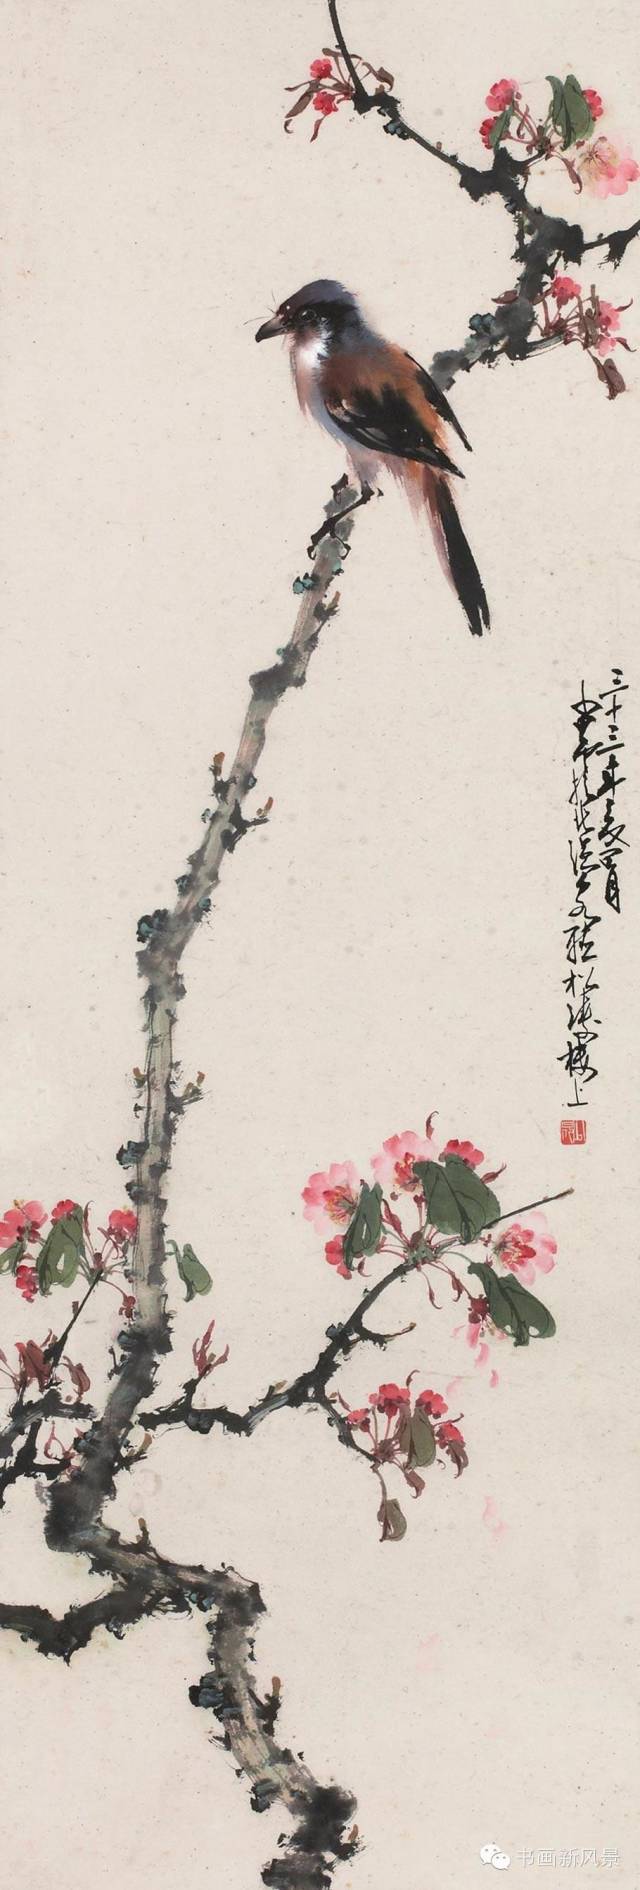 三十三年夏四月
少昂於北聽松樓上
书画新风景